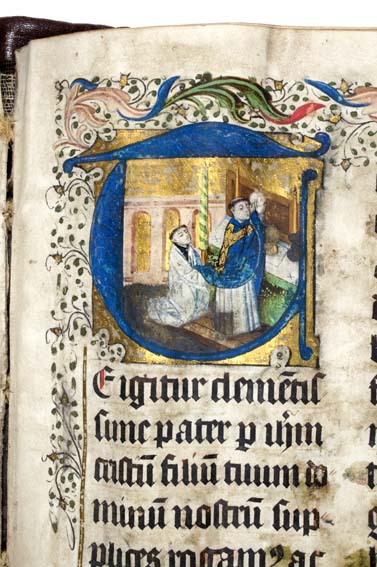 TE igitur clemētis
sime pater p ihm̄
cristū filiū tuum do
minū nostrū sup-
plices rogamꝰ ac